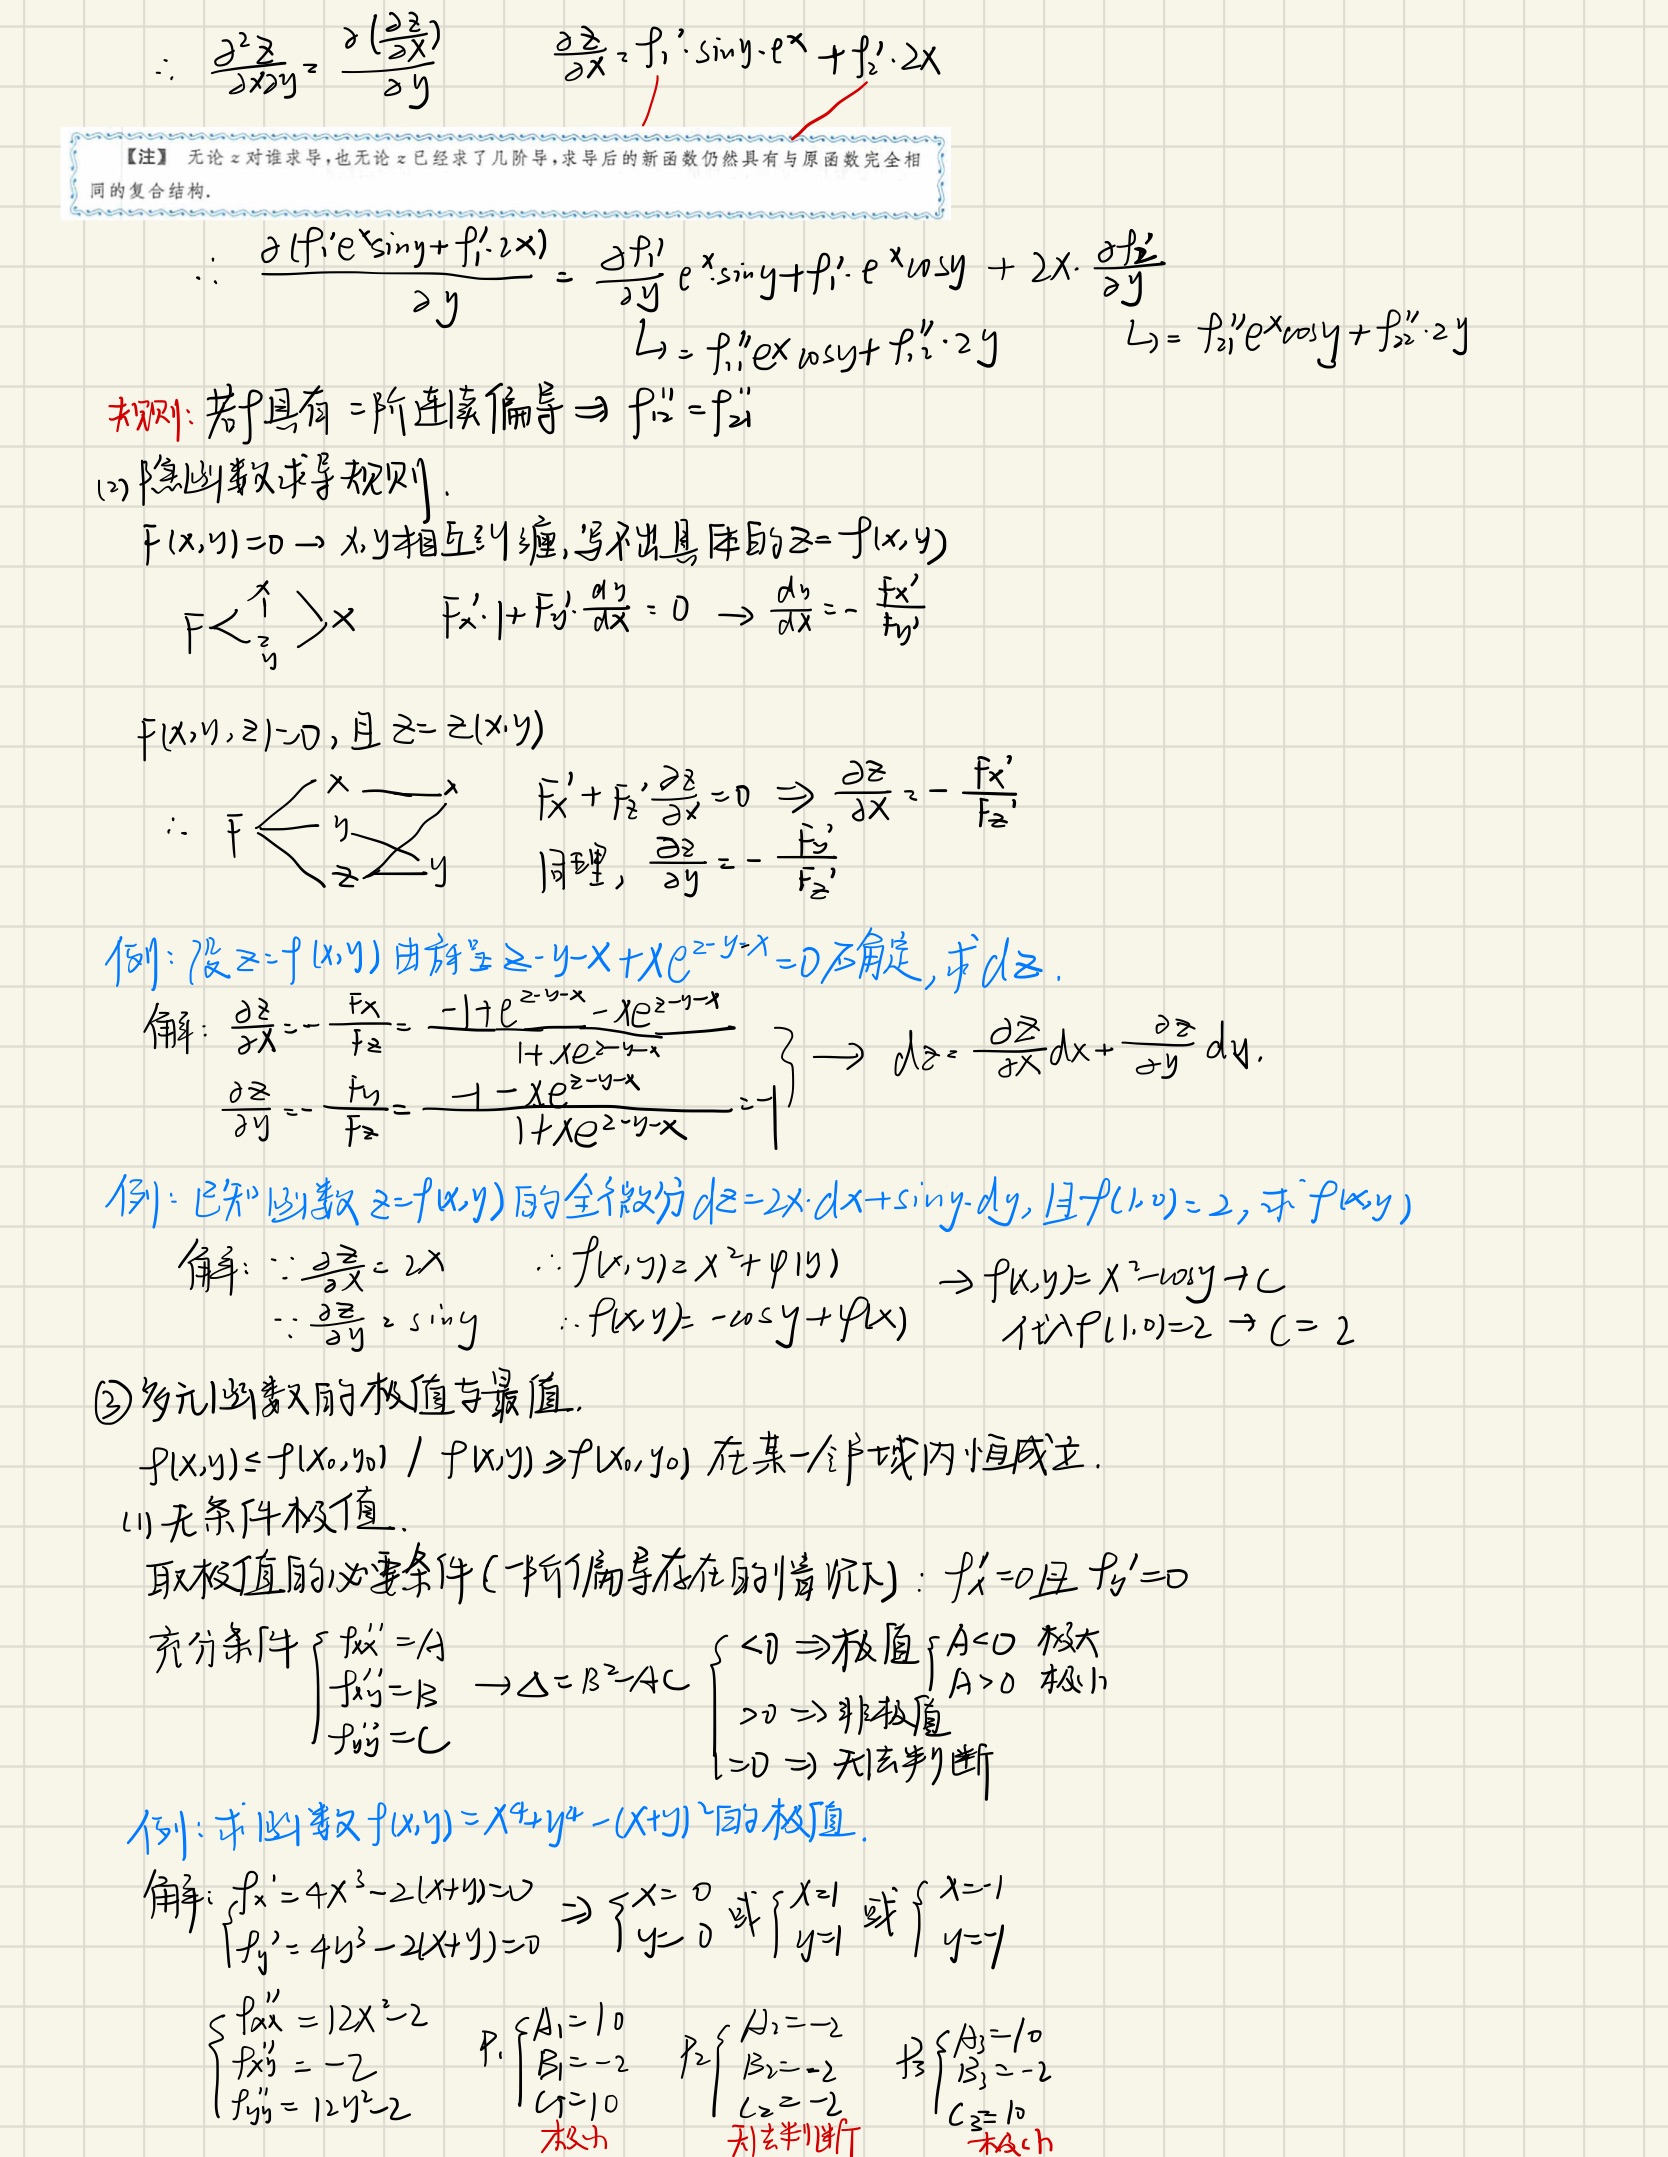 ∴ ∂²z/∂x∂y = ∂(∂z/∂x)/∂y   ∂z/∂x = f₁'·siny·eˣ + f₂'·2x
【注】 无论 z 对谁求导,也无论 z 已经求了几阶导,求导后的新函数仍然具有与原函数完全相
同的复合结构.
∴ ∂(f₁'eˣsiny + f₁'·2x)/∂y = ∂f₁'/∂y eˣ·siny + f₁'·eˣcosy + 2x·∂f₂'/∂y
↳ = f₁₁''eˣcosy + f₁₂''·2y   ↳ = f₂₁''eˣcosy + f₂₂''·2y
规则: 若f具有二阶连续偏导 ⇒ f₁₂'' = f₂₁''
(2) 隐函数求导规则.
F(x,y)=0 → x,y相互纠缠,写不出具体的z=f(x,y)
F < 1 x 2 y > x   Fx'·1 + Fy'·dy/dx = 0 → dy/dx = -Fx'/Fy'
F(x,y,z)=0, 且 z=z(x,y)
∴ F x y z x y   Fx' + Fz'∂z/∂x = 0 ⇒ ∂z/∂x = -Fx'/Fz'
同理, ∂z/∂y = -Fy'/Fz'
例: 设z=f(x,y)由方程z-y-x+xe^(z-y-x)=0所确定,求dz.
解: ∂z/∂x = -Fx/Fz = (-1+e^(z-y-x) - xe^(z-y-x))/(1+xe^(z-y-x))
∂z/∂y = -Fy/Fz = (-1-xe^(z-y-x))/(1+xe^(z-y-x)) = -1 } → dz = ∂z/∂x dx + ∂z/∂y dy.
例: 已知函数z=f(x,y)的全微分dz=2x·dx+siny·dy,且f(1,0)=2,求f(x,y)
解: ∵ ∂z/∂x = 2x   ∴ f(x,y)=x²+φ(y)   → f(x,y)=x²-cosy+C
∵ ∂z/∂y = siny   ∴ f(x,y)=-cosy+φ(x)   代入f(1,0)=2 → C=2
③ 多元函数的极值与最值.
f(x,y)≤f(x₀,y₀) / f(x,y)≥f(x₀,y₀) 在某一个邻域内恒成立.
(1) 无条件极值.
取极值的必要条件(一阶偏导存在的情况下): fx'=0且fy'=0
充分条件 { fxx''=A   fxy''=B   fyy''=C → Δ=B²-AC { <0 ⇒ 极值 { A<0 极大   A>0 极小
>0 ⇒ 非极值
=0 ⇒ 无法判断
例: 求函数f(x,y)=x⁴+y⁴-(x+y)²的极值.
解: { fx'=4x³-2(x+y)=0   fy'=4y³-2(x+y)=0 ⇒ { x=0 y=0 或 { x=1 y=1 或 { x=-1 y=-1
{ fxx''=12x²-2   fxy''=-2   fyy''=12y²-2   P₁ { A₁=10 B₁=-2 C₁=10   P₂ { A₂=-2 B₂=-2 C₂=-2   P₃ { A₃=10 B₃=-2 C₃=10
极小   无法判断   极小